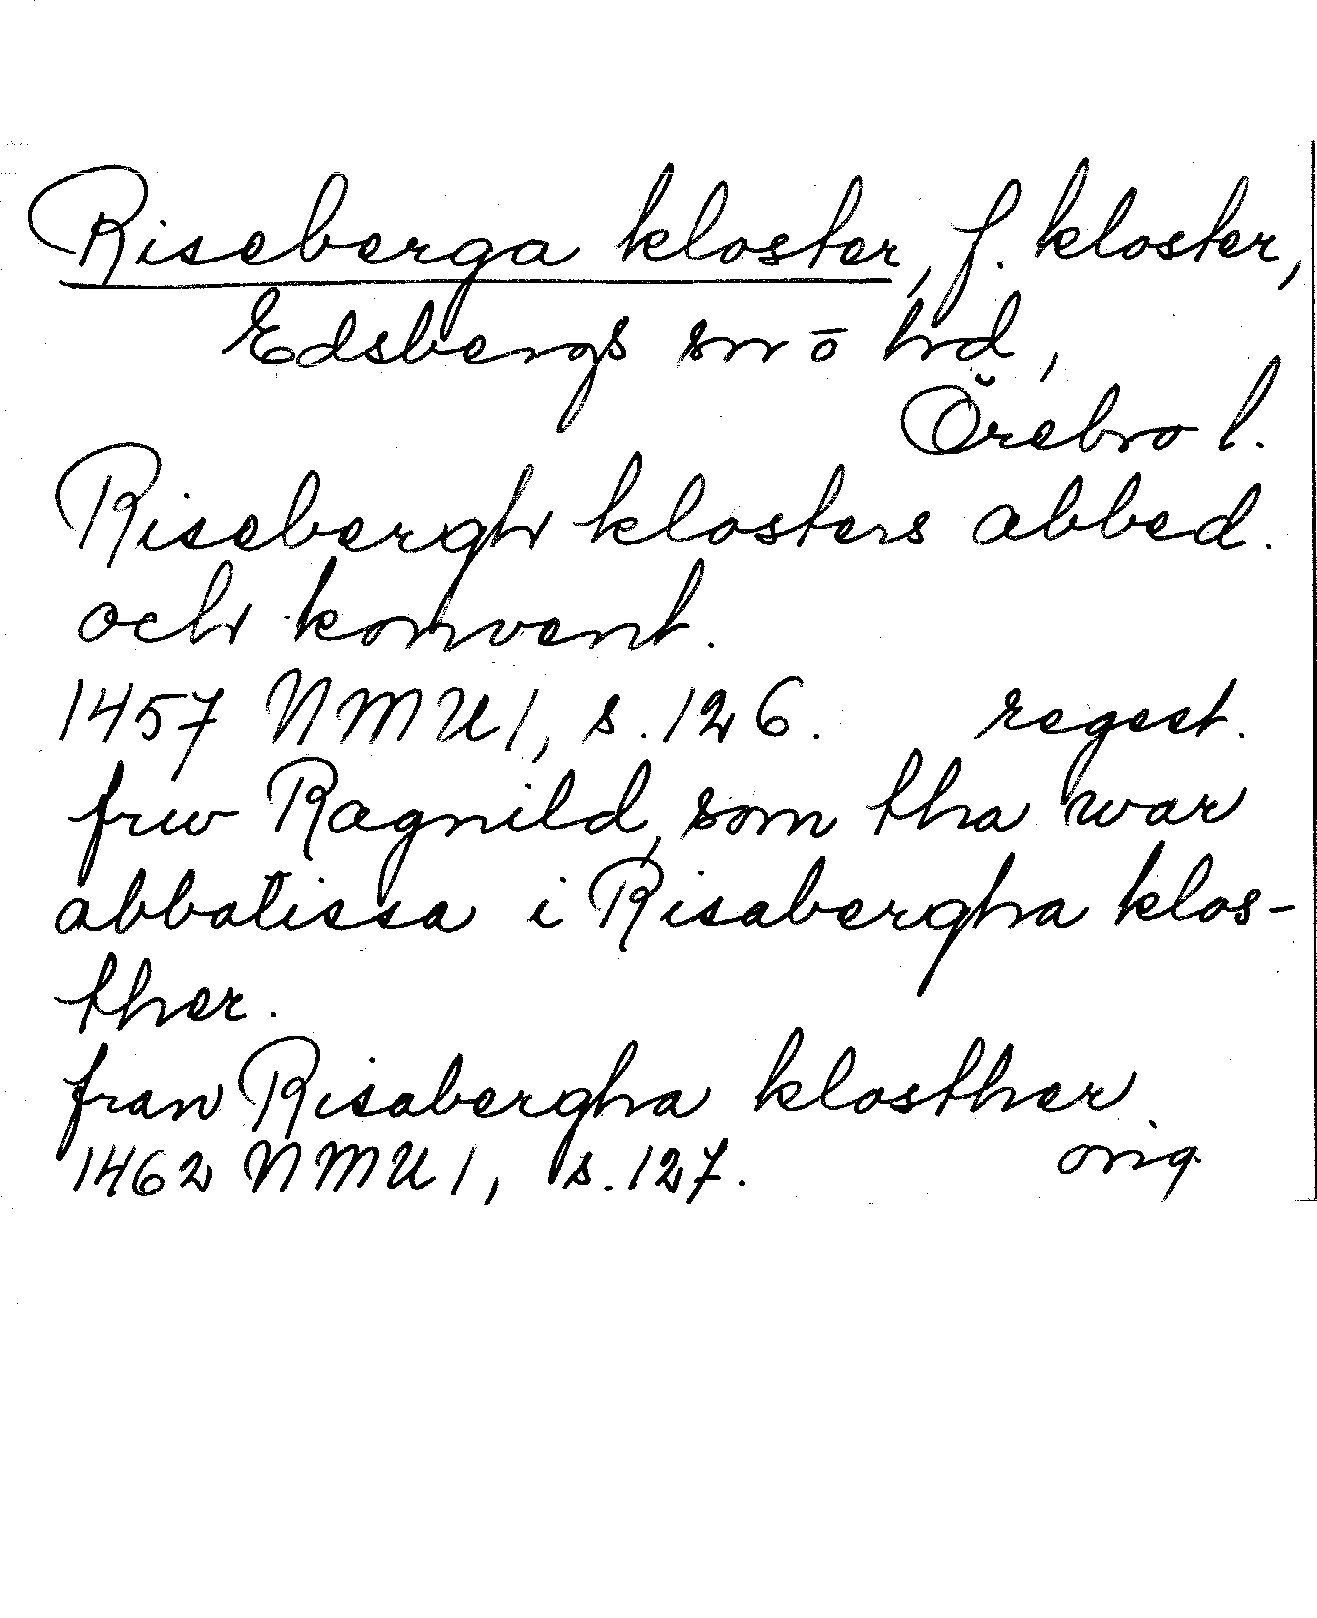 Riseberga kloster, f. kloster,
Edsbergs sn o hd,
Örebro l.
Risebergh klosters abbed.
och konvent.
1457 NMU 1, s. 126. regest.
frw Ragnild, som tha war
abbatissa i Risabergha klos-
ther.
fran Risabergha klosther
1462 NMU 1, s. 127. orig.